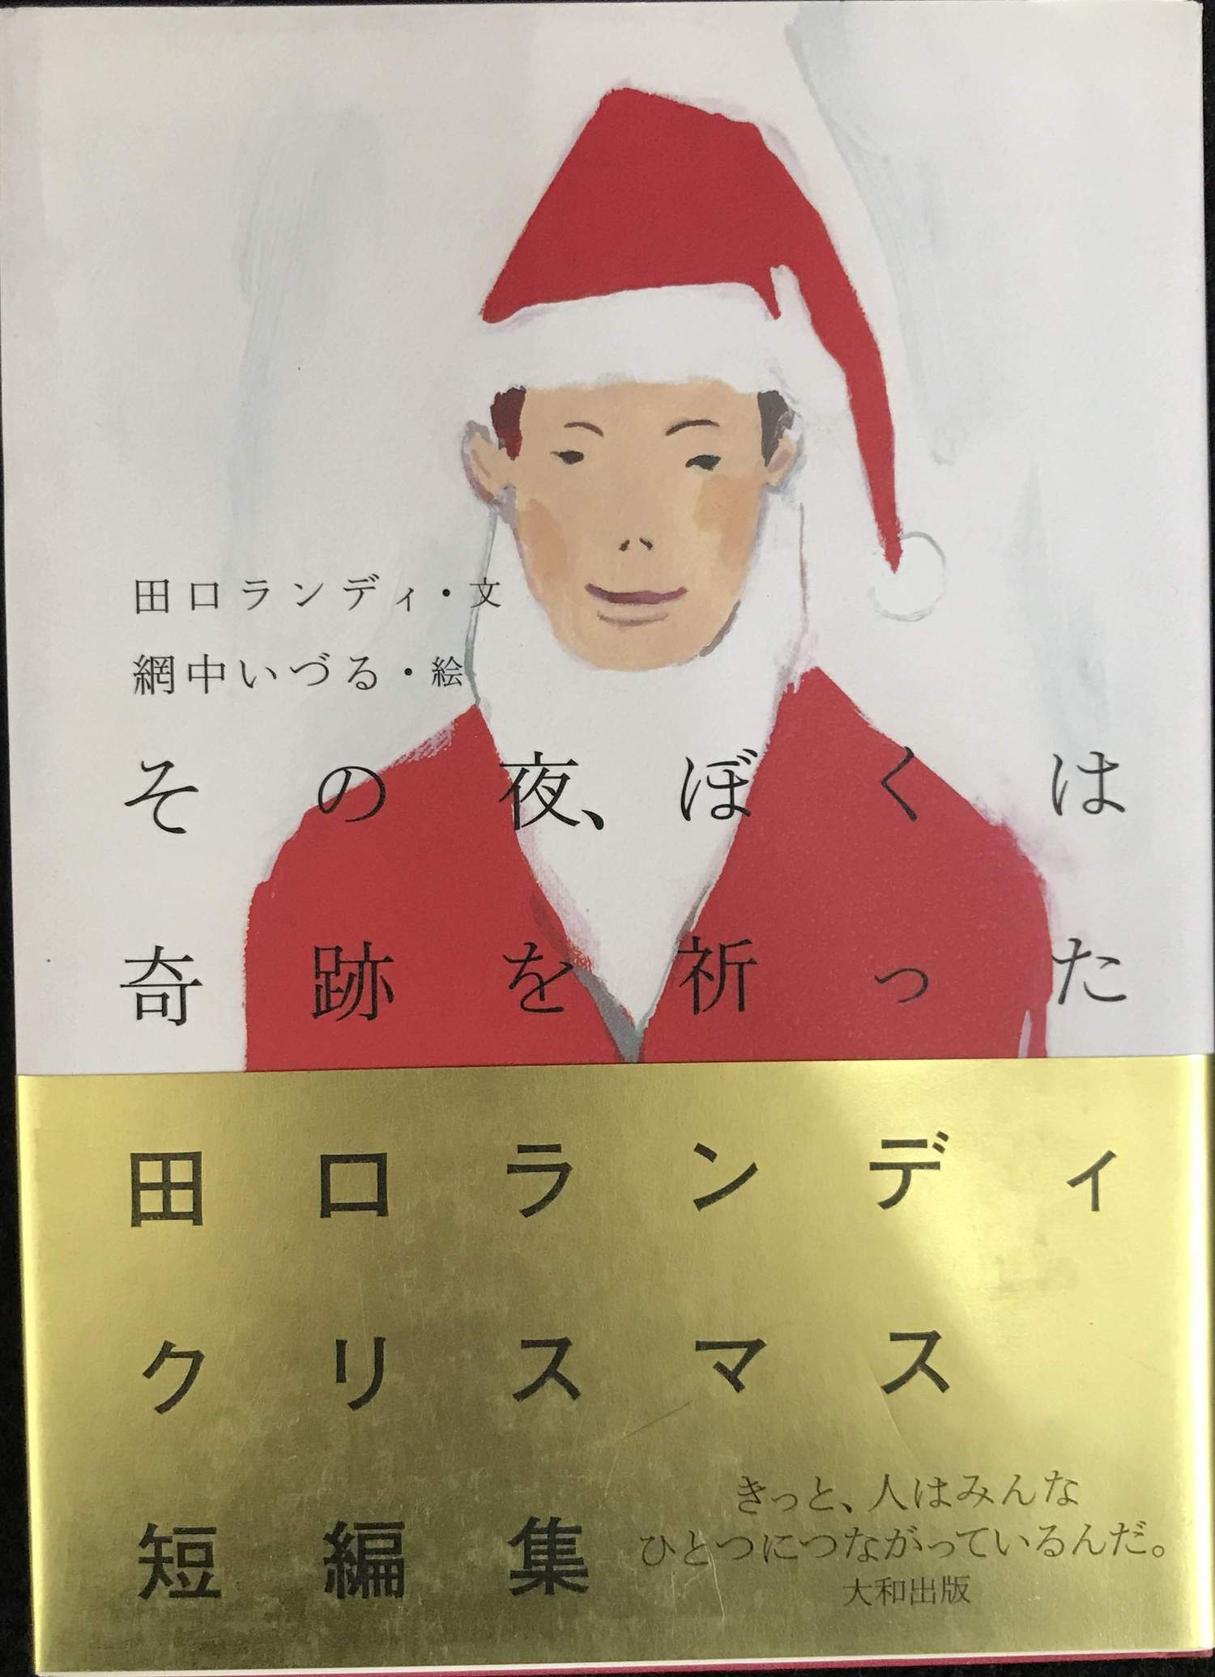 田口ランディ・文
網中いづる・絵
その夜、ぼくは
奇跡を祈った
田口ランディ
クリスマス
短編集
きっと、人はみんな
ひとつにつながっているんだ。
大和出版